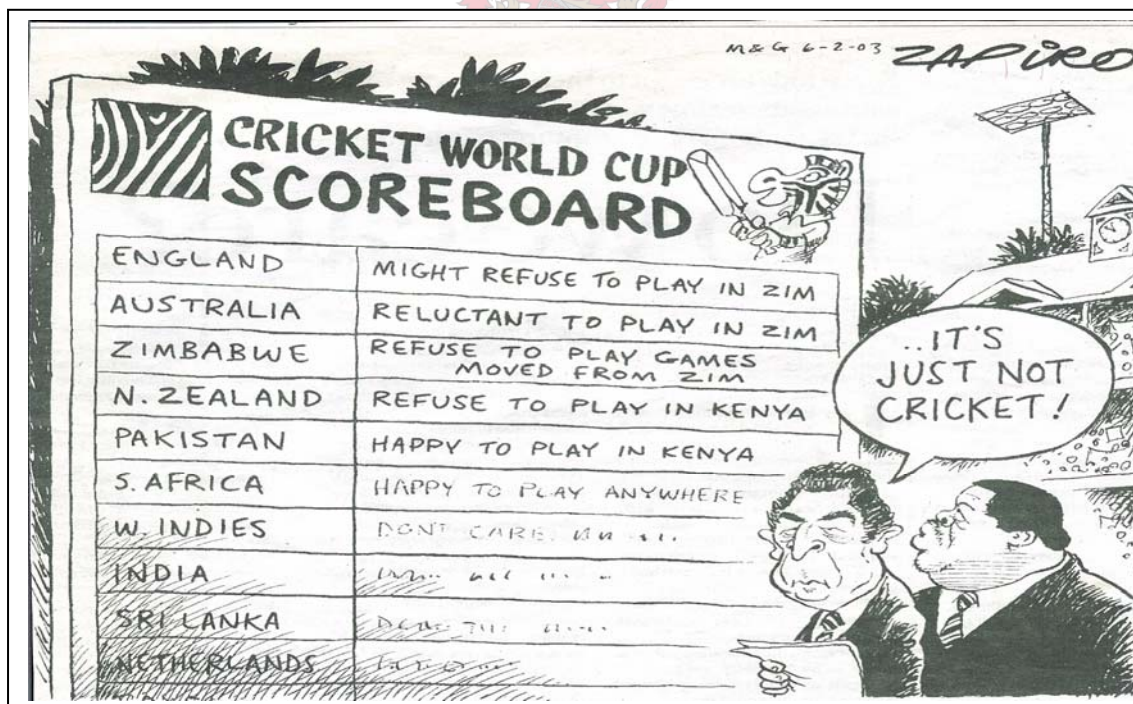 M&G 6-2-03 ZAPIRO
CRICKET WORLD CUP
SCOREBOARD
ENGLAND MIGHT REFUSE TO PLAY IN ZIM
AUSTRALIA RELUCTANT TO PLAY IN ZIM
ZIMBABWE REFUSE TO PLAY GAMES
MOVED FROM ZIM
N. ZEALAND REFUSE TO PLAY IN KENYA
PAKISTAN HAPPY TO PLAY IN KENYA
S. AFRICA HAPPY TO PLAY ANYWHERE
W. INDIES DON'T CARE
INDIA
SRI LANKA
NETHERLANDS
...IT'S
JUST NOT
CRICKET!